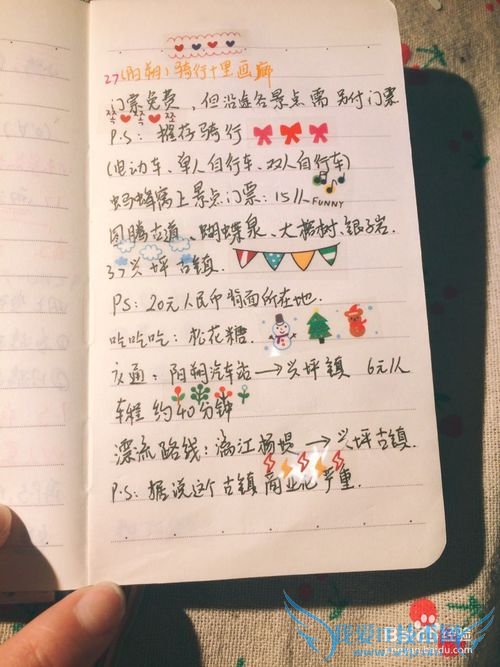 2.7(阳朔)骑行十里画廊
门票免费,但沿途各景点需另付门票
P.S: 推荐骑行
(电动车、单人自行车、双人自行车)
蚂蜂窝上景点门票: 15/人
FUNNY
图腾古道、蝴蝶泉、大榕树、银子岩.
3.7兴坪古镇.
PS: 20元人民币背面所在地.
吃吃吃: 松花糖.
交通: 阳朔汽车站→兴坪镇 6元/人
车程 约40分钟
漂流路线: 漓江杨堤→兴坪古镇.
P.S: 据说这个古镇商业化严重.
jingyan.baidu.com